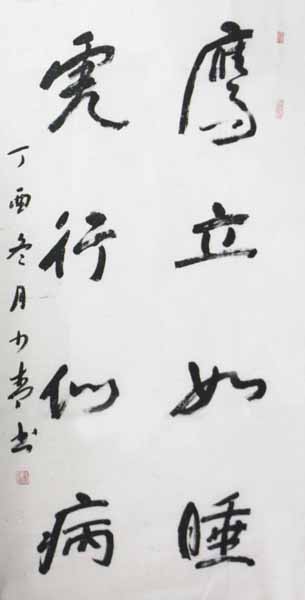 鹰立如睡
虎行似病
丁酉冬月少青书